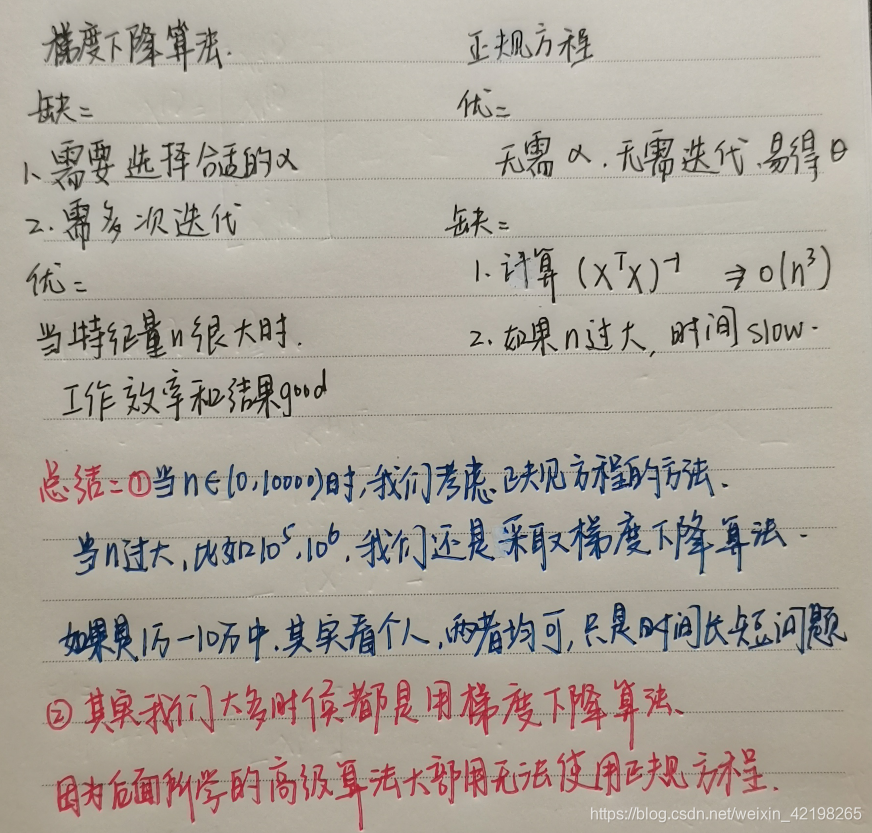 梯度下降算法.
缺:
1、需要选择合适的α
2.需多次迭代
优:
当特征量n很大时.
工作效率和结果good
正规方程
优:
无需α.无需迭代.易得θ
缺:
1.计算 (XᵀX)⁻¹ ⇒ O(n³)
2.如果n过大,时间slow.
总结:①当n∈(0,10000)时,我们考虑正规方程的方法.
当n过大,比如10⁵,10⁶,我们还是采取梯度下降算法.
如果是1万-10万中.其实看个人,两者均可,只是时间长短问题
②其实我们大多时候都是用梯度下降算法、
因为后面所学的高级算法大部用无法使用正规方程.
https://blog.csdn.net/weixin_42198265